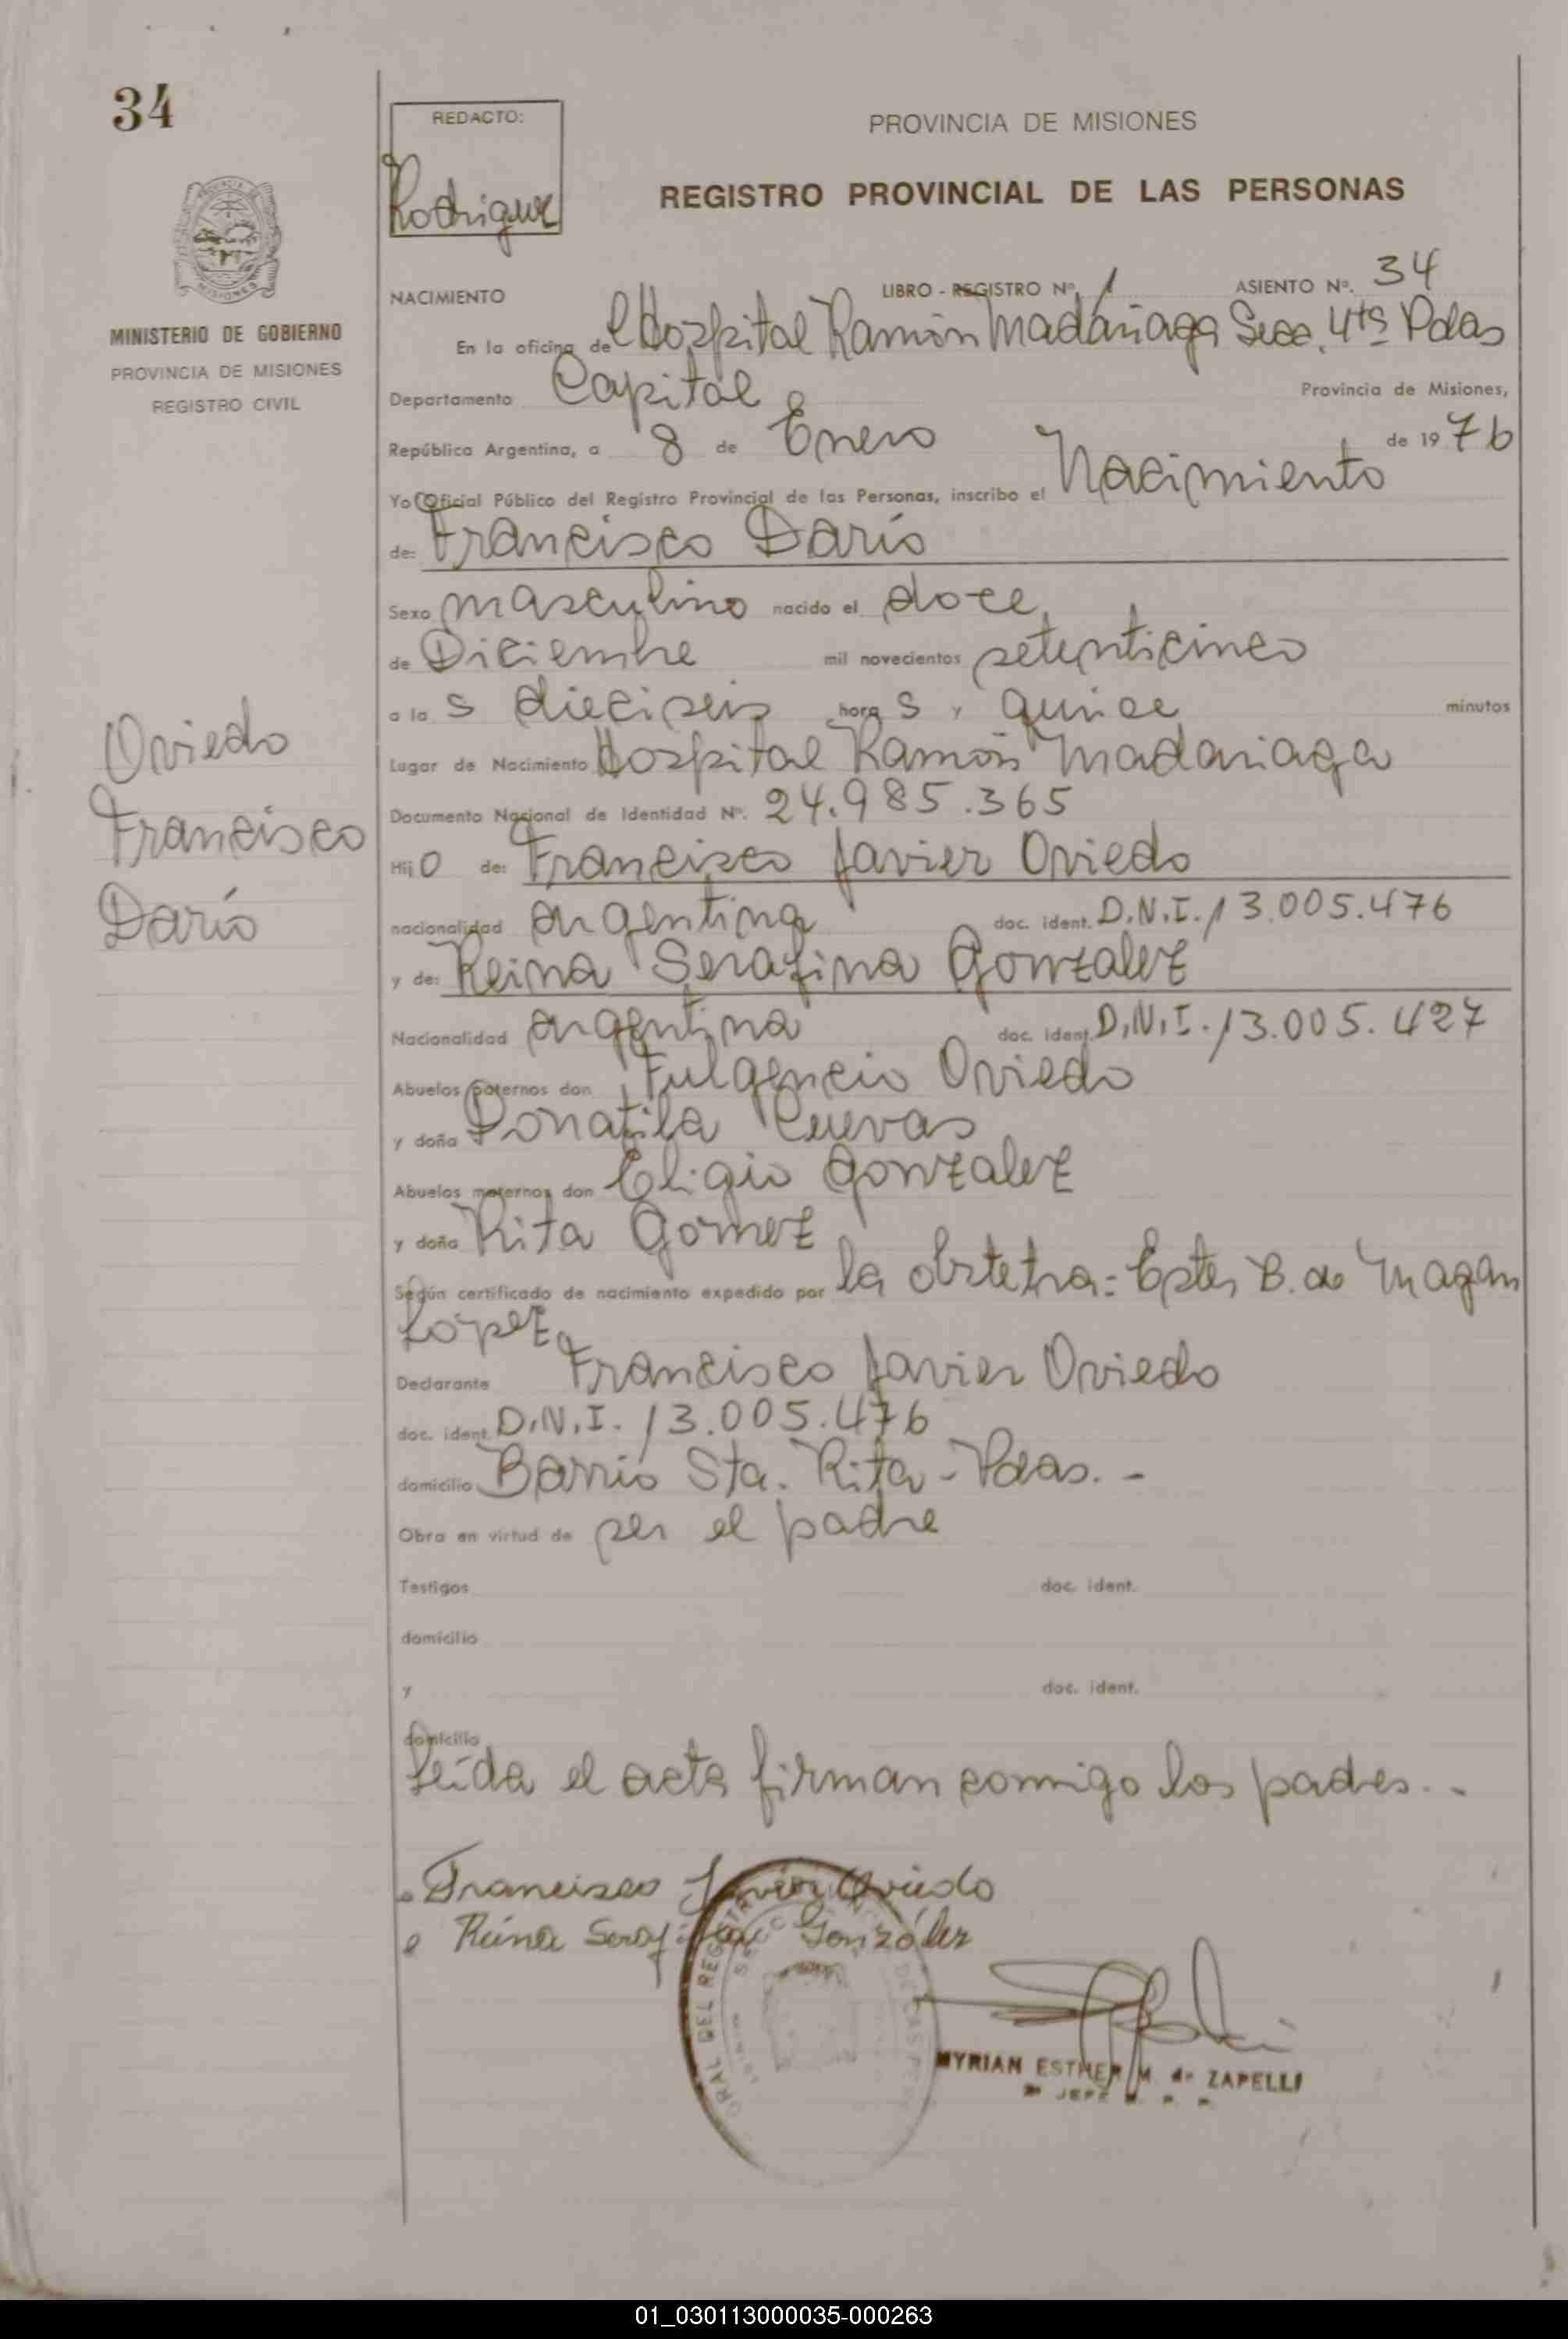 34
REDACTO:
Rodriguez
PROVINCIA DE MISIONES
REGISTRO PROVINCIAL DE LAS PERSONAS
MINISTERIO DE GOBIERNO
PROVINCIA DE MISIONES
REGISTRO CIVIL
NACIMIENTO LIBRO - REGISTRO Nº. 1 ASIENTO Nº. 34
En la oficina del Hospital Ramón Madariaga Secc. 4ta Pdas
Departamento Capital Provincia de Misiones,
República Argentina, a 8 de Enero de 1976
Yo Oficial Público del Registro Provincial de las Personas, inscribo el Nacimiento
de: Francisco Darío
Sexo masculino nacido el doce
de Diciembre mil novecientos setenticinco
a las dieciseis horas y quince minutos
Lugar de Nacimiento Hospital Ramón Madariaga
Documento Nacional de Identidad Nº. 24.985.365
Hijo de: Francisco Javier Oviedo
nacionalidad argentina doc. ident. D.N.I. 13.005.476
y de: Reina Serafina Gonzalez
Nacionalidad argentina doc. ident. D.N.I. 13.005.427
Abuelos paternos don Fulgencio Oviedo
y doña Donatila Cuevas
Abuelos maternos don Eligio Gonzalez
y doña Rita Gómez
Según certificado de nacimiento expedido por la obstetra: Ester B. de Magan
López
Declarante Francisco Javier Oviedo
doc. ident. D.N.I. 13.005.476
domicilio Barrio Sta. Rita - Pdas. -
Obra en virtud de ser el padre
Testigos doc. ident.
domicilio
y doc. ident.
domicilio
Leída el acta firman conmigo los padres. -
Oviedo
Francisco
Darío
Francisco Javier Oviedo
Reina Serafina González
MYRIAN ESTHER M. de ZAPELLI
01_030113000035-000263